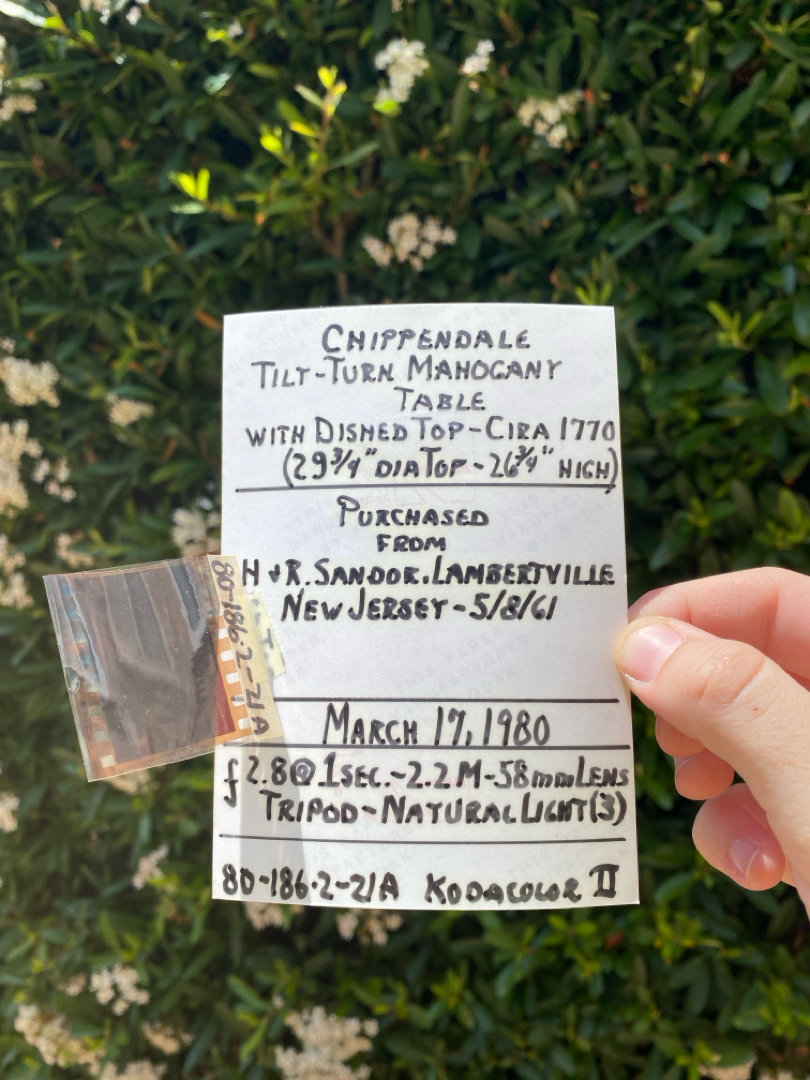 CHIPPENDALE
TILT-TURN MAHOGANY
TABLE
WITH DISHED TOP-CIRA 1770
(29 3/4" DIA TOP - 26 3/4" HIGH)
PURCHASED
FROM
H + R. SANDOR. LAMBERTVILLE
NEW JERSEY - 5/8/61
MARCH 17, 1980
f 2.8 @ 1 SEC. - 2.2 M - 58mm LENS
TRIPOD - NATURAL LIGHT (3)
80-186-2-21A KODACOLOR II
80-186-2-21A